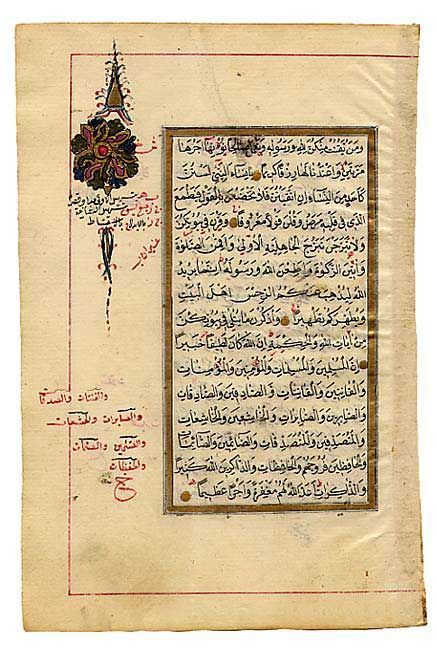 ومن يقنت منكن لله ورسوله وتعمل صالحا نؤتها اجرها
مرتين واعتدنا لها رزقا كريما يا نساء النبي لستن
كاحد من النساء ان اتقيتن فلا تخضعن بالقول فيطمع
الذي في قلبه مرض وقلن قولا معروفا وقرن في بيوتكن
ولا تبرجن تبرج الجاهلية الاولى واقمن الصلوة
واتين الزكوة واطعن الله ورسوله انما يريد
الله ليذهب عنكم الرجس اهل البيت
ويطهركم تطهيرا واذكرن ما يتلى في بيوتكن
من ايات الله والحكمة ان الله كان لطيفا خبيرا
ان المسلمين والمسلمات والمؤمنين والمؤمنات
والقانتين والقانتات والصادقين والصادقات
والصابرين والصابرات والخاشعين والخاشعات
والمتصدقين والمتصدقات والصائمين والصائمات
والحافظين فروجهم والحافظات والذاكرين الله كثيرا
والذاكرات اعد الله لهم مغفرة واجرا عظيما
والقنتات والصدقات
والصابرات والخشعات
والصئمات
والحفظات